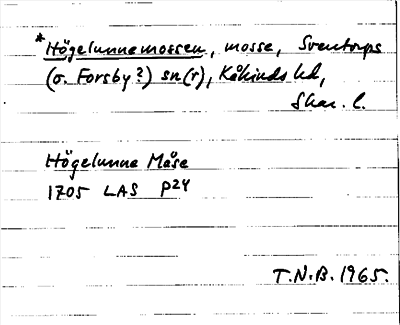 *Högelunnemossen, mosse, Sventorps
(o. Forsby?) sn(r), Kåkinds hd,
Skar. l.
Högelunna Måse
1705 LAS P24
T.N.B. 1965.